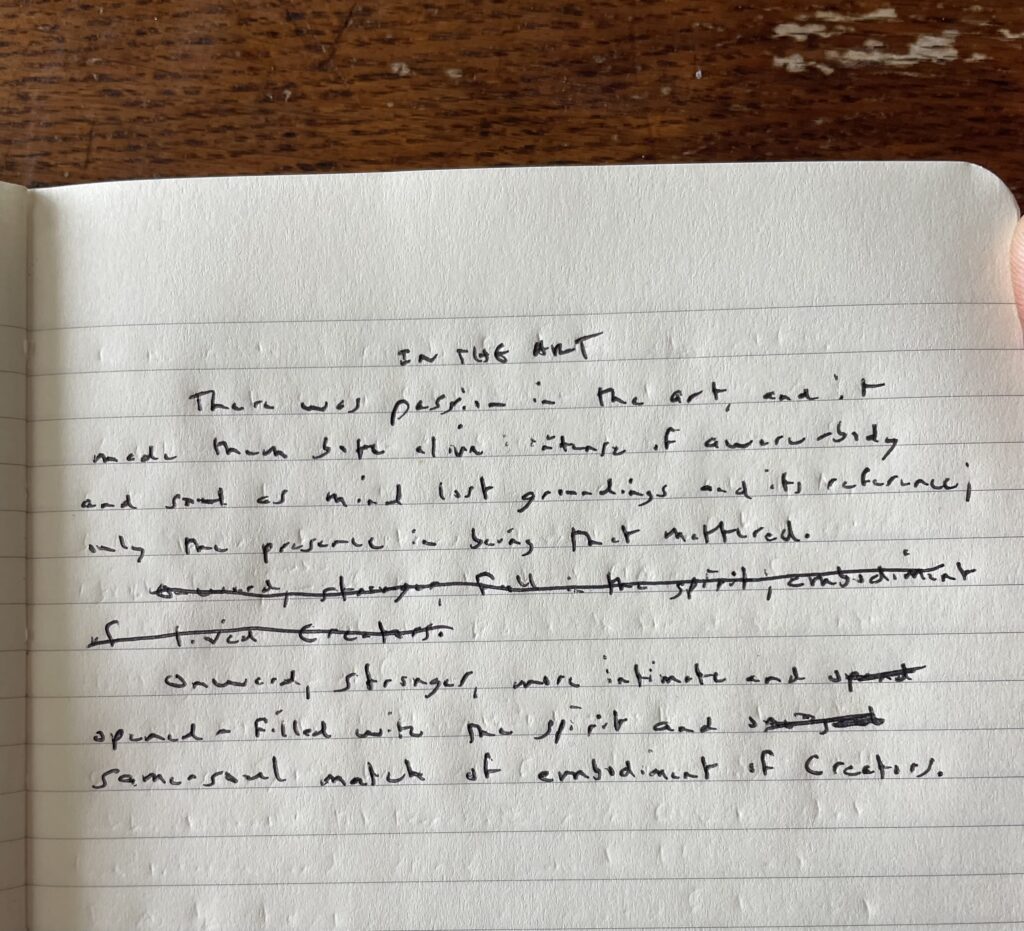 IN THE ART
There was passion in the art, and it
made them both alive: intense of aware-body
and soul as mind lost groundings and its reference;
only the presence in being that mattered.
Onward, stronger, full in the spirit; embodiment
of lived Creators.
Onward, stronger, more intimate and
opened - filled with the spirit and
same-soul match of embodiment of Creators.